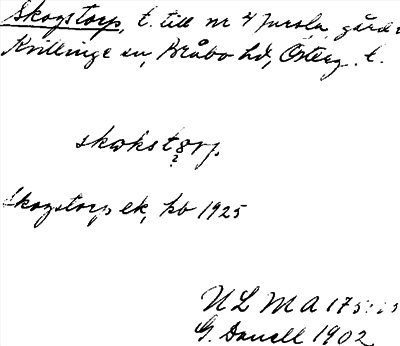 Skogstorp, t. till nr 4 Jursla, gård i
Kvillinge sn, Bråbo hd, Österg. l.
skωkstɡrp
Skogstorp ek, kb 1925
ULMA 175:
G. Danell 1902